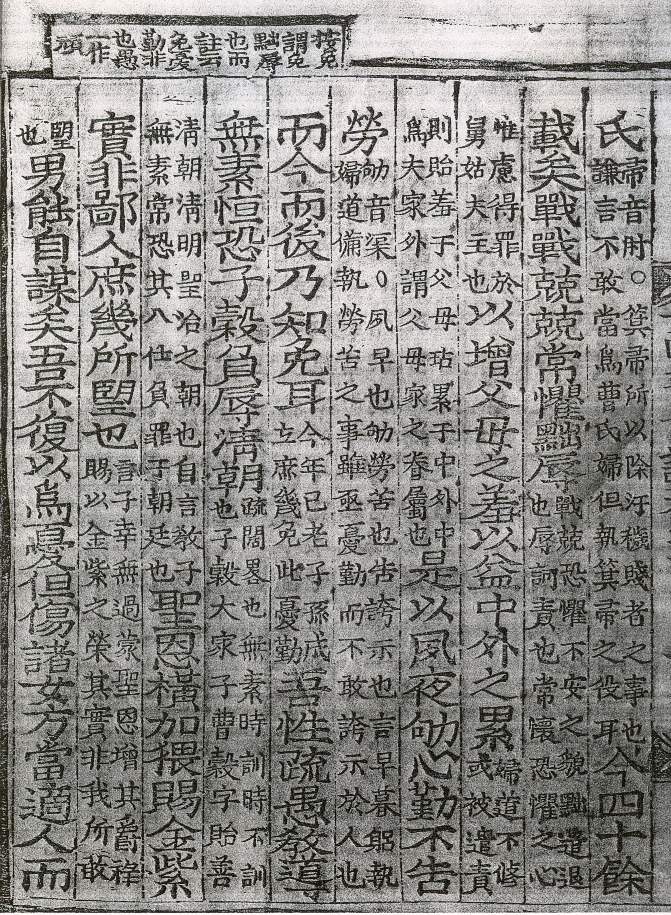 按免
謂免
黜辱
也而
註云
免憂
勤非
也愚
一作
頑
氏帚音肘○箕帚所以除汙穢賤者之事也謙言不敢當為曹氏婦但執箕帚之役耳今四十餘
載矣戰戰兢兢常懼黜辱戰兢恐懼不安之貌黜遣退也辱訶責也常懷恐懼之心
惟慮得罪於舅姑夫主也以增父母之羞以益中外之累婦道不修或被遣責
則貽羞于父母玷累于中外中為大家外謂父母家之眷屬也是以夙夜劬心勤不告
勞劬音渠○夙早也劬勞苦也告誇示也言早暮躬執婦道備執勞苦之事雖亟憂勤而不敢誇示於人也
而今而後乃知免耳今年已老子孫成立庶幾免此憂勤吾性疏愚教導
無素恒恐子穀負辱清朝疏闊畧也無素時訓時不訓也子穀大家子曹穀字貽善
清朝清明聖治之朝也自言教子無素常恐其八仕負罪于朝廷也聖恩橫加猥賜金紫
實非鄙人庶幾所望也言子幸無過蒙聖恩增其爵祿賜以金紫之榮其實非我所敢
望也男能自謀矣吾不復以為憂但傷諸女方當適人而